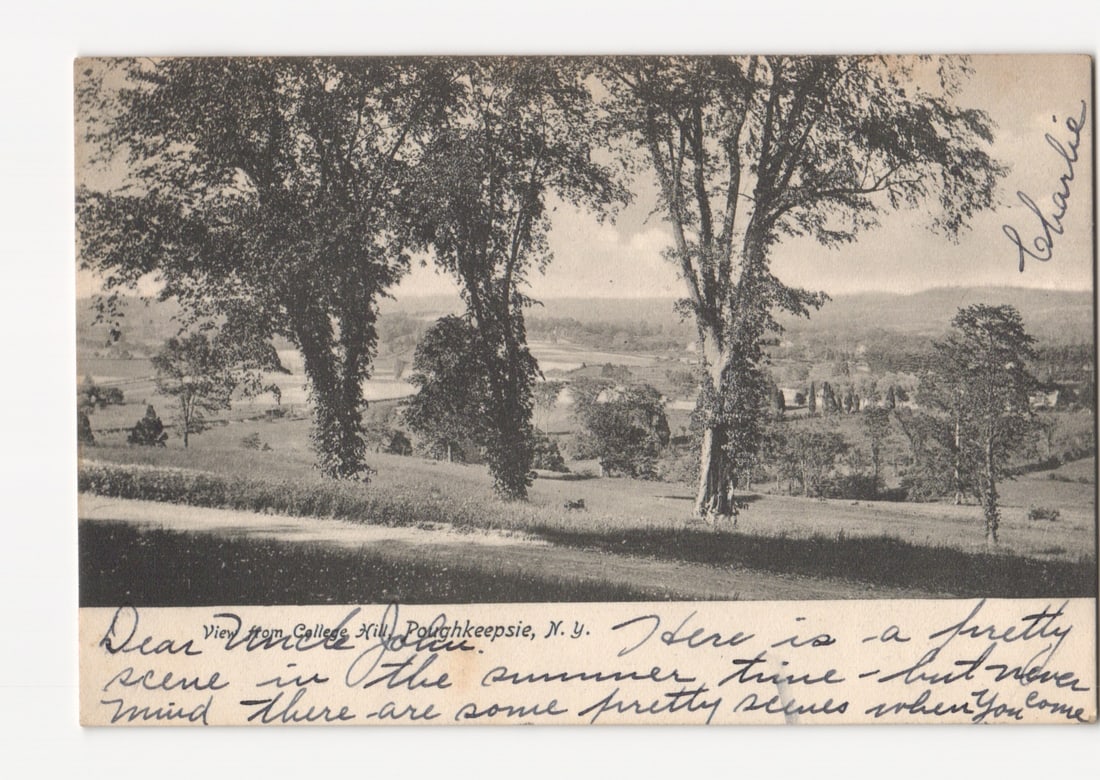 Charlie
View from College Hill, Poughkeepsie, N. Y.
Dear Uncle John. Here is a pretty
scene in the summer time - but never
mind there are some pretty scenes when you come